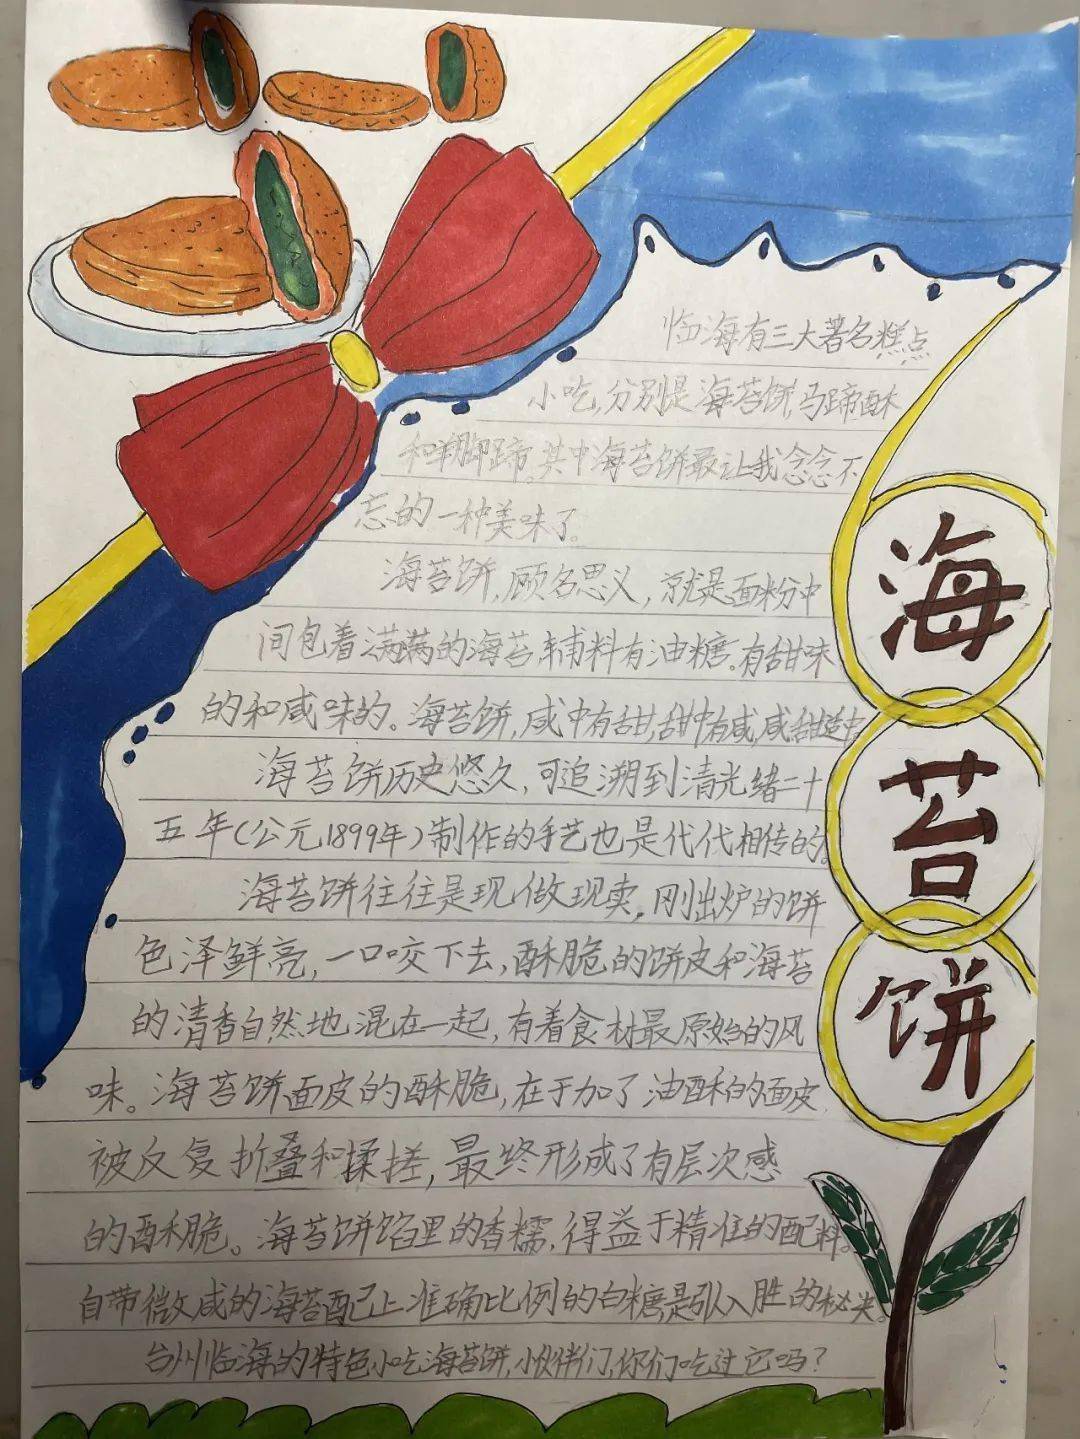 海苔饼
临海有三大著名糕点
小吃,分别是海苔饼,马蹄酥
和羊脚蹄。其中海苔饼最让我念念不
忘的一种美味了。
海苔饼,顾名思义,就是面粉中
间包着满满的海苔,辅料有油糖。有甜味
的和咸味的。海苔饼,咸中有甜,甜中有咸,咸甜适中
海苔饼历史悠久,可追溯到清光绪二十
五年(公元1899年)制作的手艺也是代代相传的。
海苔饼往往是现做现卖,刚出炉的饼
色泽鲜亮,一口咬下去,酥脆的饼皮和海苔
的清香自然地混在一起,有着食材最原始的风
味。海苔饼面皮的酥脆,在于加了油酥的面皮,
被反复折叠和揉搓,最终形成了有层次感
的酥脆。海苔饼馅里的香糯,得益于精准的配料。
自带微咸的海苔配上准确比例的白糖是引人入胜的秘诀。
台州临海的特色小吃海苔饼,小伙伴们,你们吃过它吗?